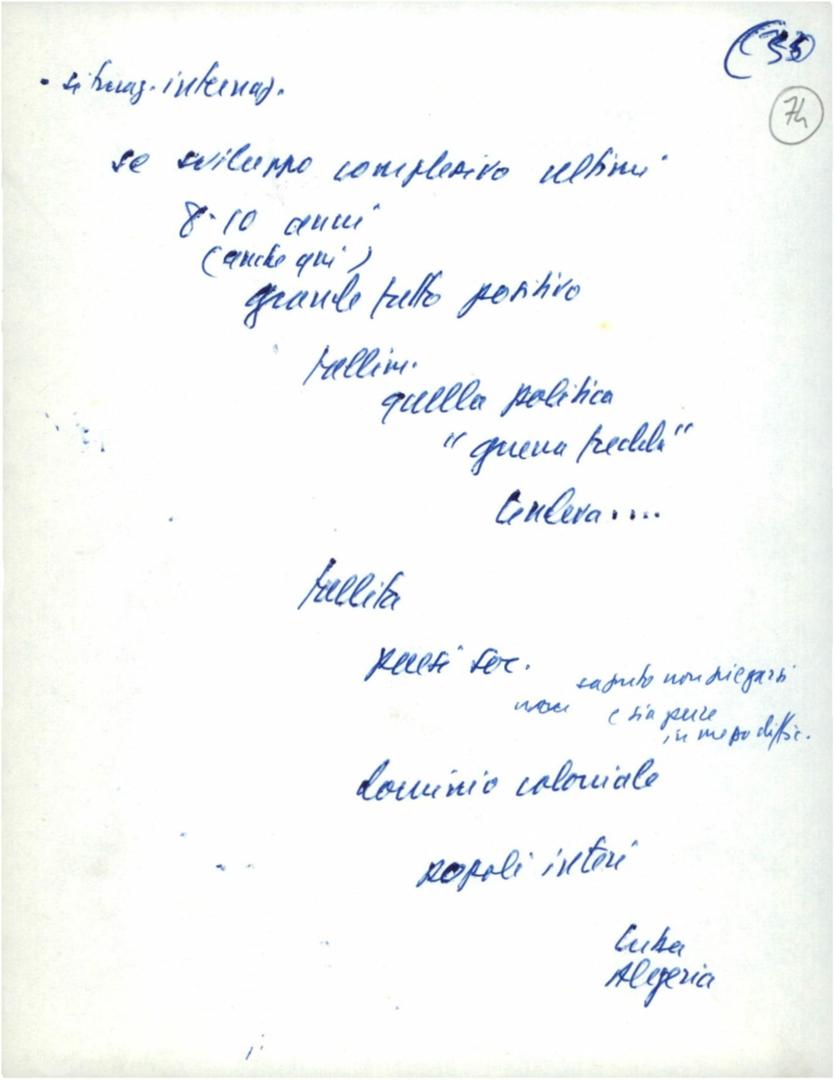 (35
74
• situaz. internaz.
se sviluppo complessivo ultimi
8-10 anni
(anche qui)
grande fatto positivo
fallim.
quella politica
"guerra fredda"
tendeva....
fallita
paesi soc.
saputo non piegarsi
e sia pure
in mezzo diffic.
dominio coloniale
popoli interi
Cuba
Algeria